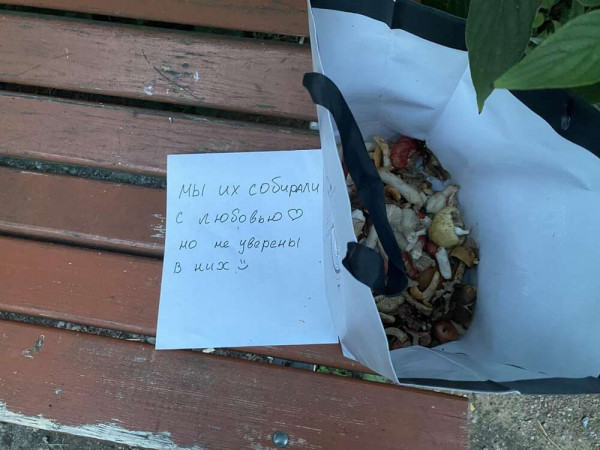 МЫ ИХ СОБИРАЛИ
С ЛЮБОВЬЮ♡
НО НЕ УВЕРЕНЫ
В НИХ